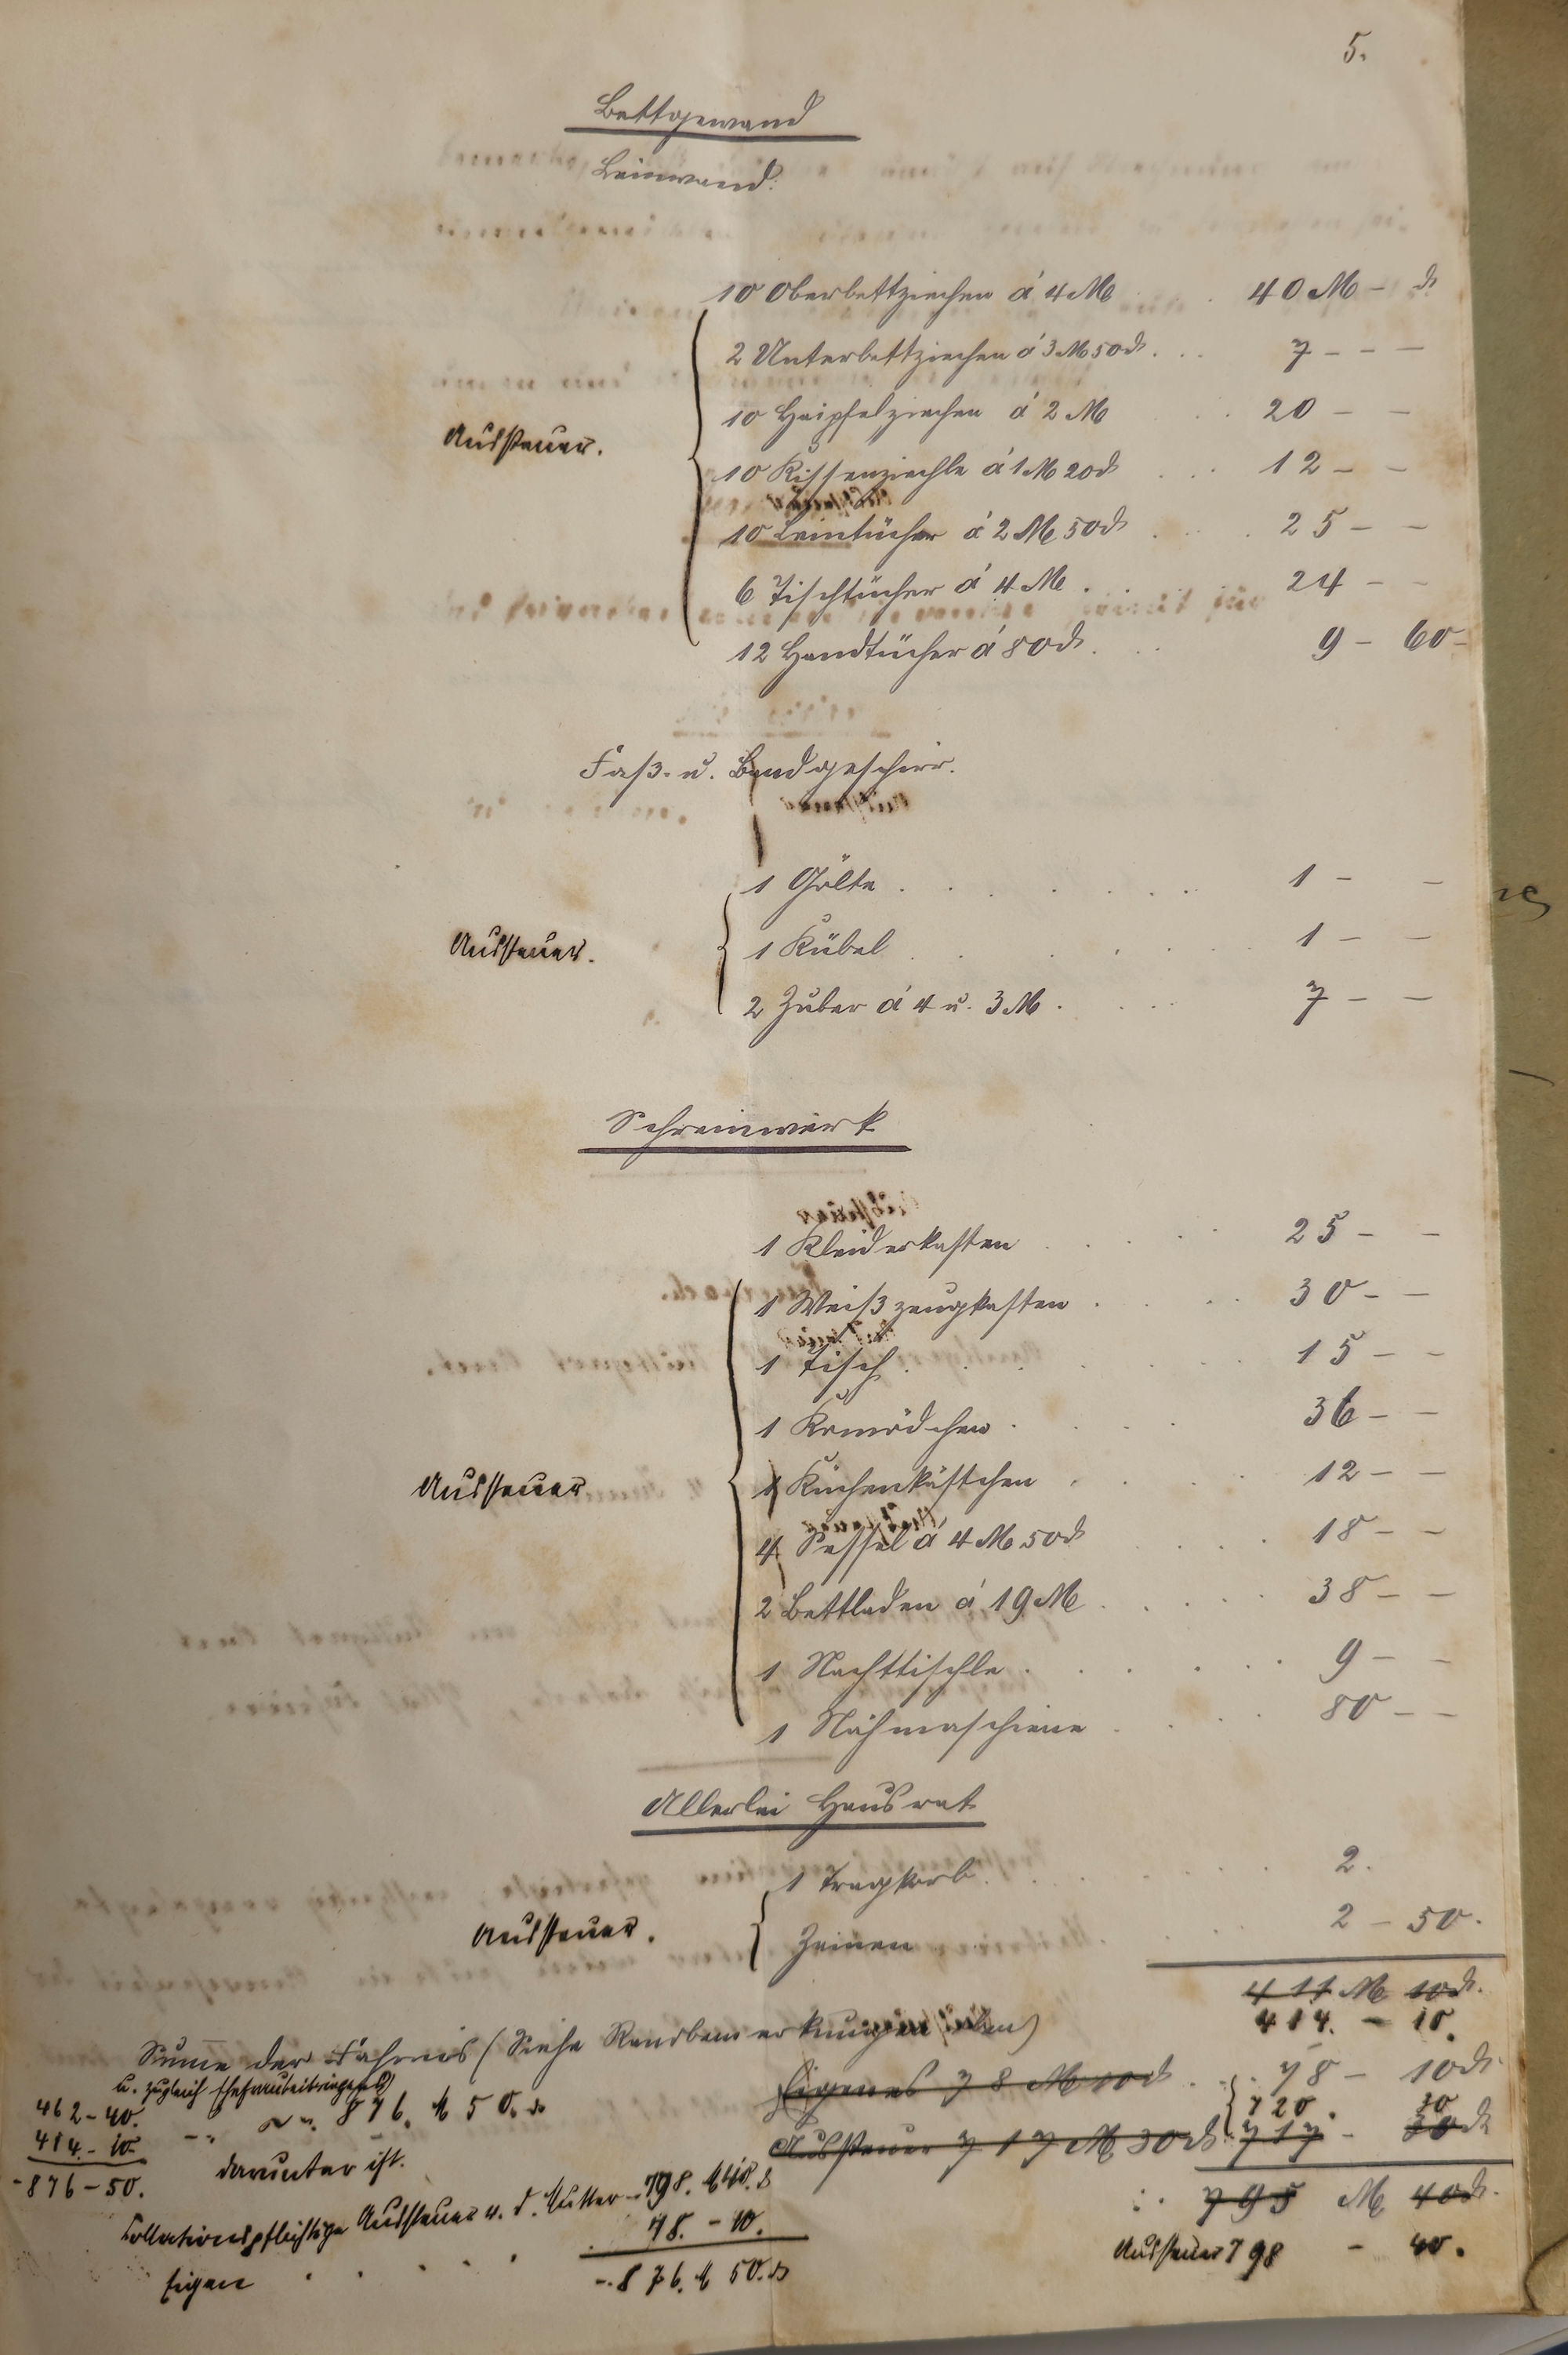 5.
Bettgewand
Leinwand.
10 Oberbettziechen á 4 M . 40 M - ₰
2 Unterbettziechen á 3 M 50 ₰ . . . 7 - - -
Aussteuer.
10 Haipfelziechen á 2 M . 20 - -
10 Kissenziechle á 1 M 20 ₰ . . . 12 - -
10 Leintücher á 2 M 50 ₰ . . . 25 - -
6 Tischtücher á 4 M . . . 24 - -
12 Handtücher á 80 ₰ . . . 9 - 60 -
Faß- u. Bandgeschirr.
1 Gölte . . . . . . 1 - -
Aussteuer.
1 Kübel . . . . 1 - -
2 Zuber á 4 u. 3 M . . . . 7 - -
Schreinwerk
1 Kleiderkasten . . . . 25 - -
1 Weißzeugkasten . . . . 30 - -
1 Tisch . . . . . 15 - -
1 Komödchen . . . . 36 - -
Aussteuer
1 Küchenkästchen . . . . 12 - -
4 Sessel á 4 M 50 ₰ . . . 18 - -
2 Bettladen á 19 M . . . . . 38 - -
1 Nachttischle . . . . . 9 - -
1 Nähmaschiene . . . . 80 - -
Allerlei Hausrat
1 Tragkorb . . . . . 2.
Aussteuer.
Zeinen . 2 - 50.
411 M 10 ₰.
414. - 10.
Summe der Fahrnis (Siehe Randbemerkungen oben)
u. zugleich Ehefraubeibringens
876. M 50. ₰
Eigenes 78 M 10 ₰ . . 78 - 10 ₰.
720. 30
Aussteuer 717 M 30 ₰ 717 - 30 ₰
462 - 40.
414. - 10.
- 876 - 50.
darunter ist.
Collationspflichtige Aussteuer v. d. Mutter - 798. M 40. ₰
78. - 10.
Eigen . . . .
- . 876. M 50. ₰
: . 795 M 40 ₰.
Aussteuer 798 - 40.